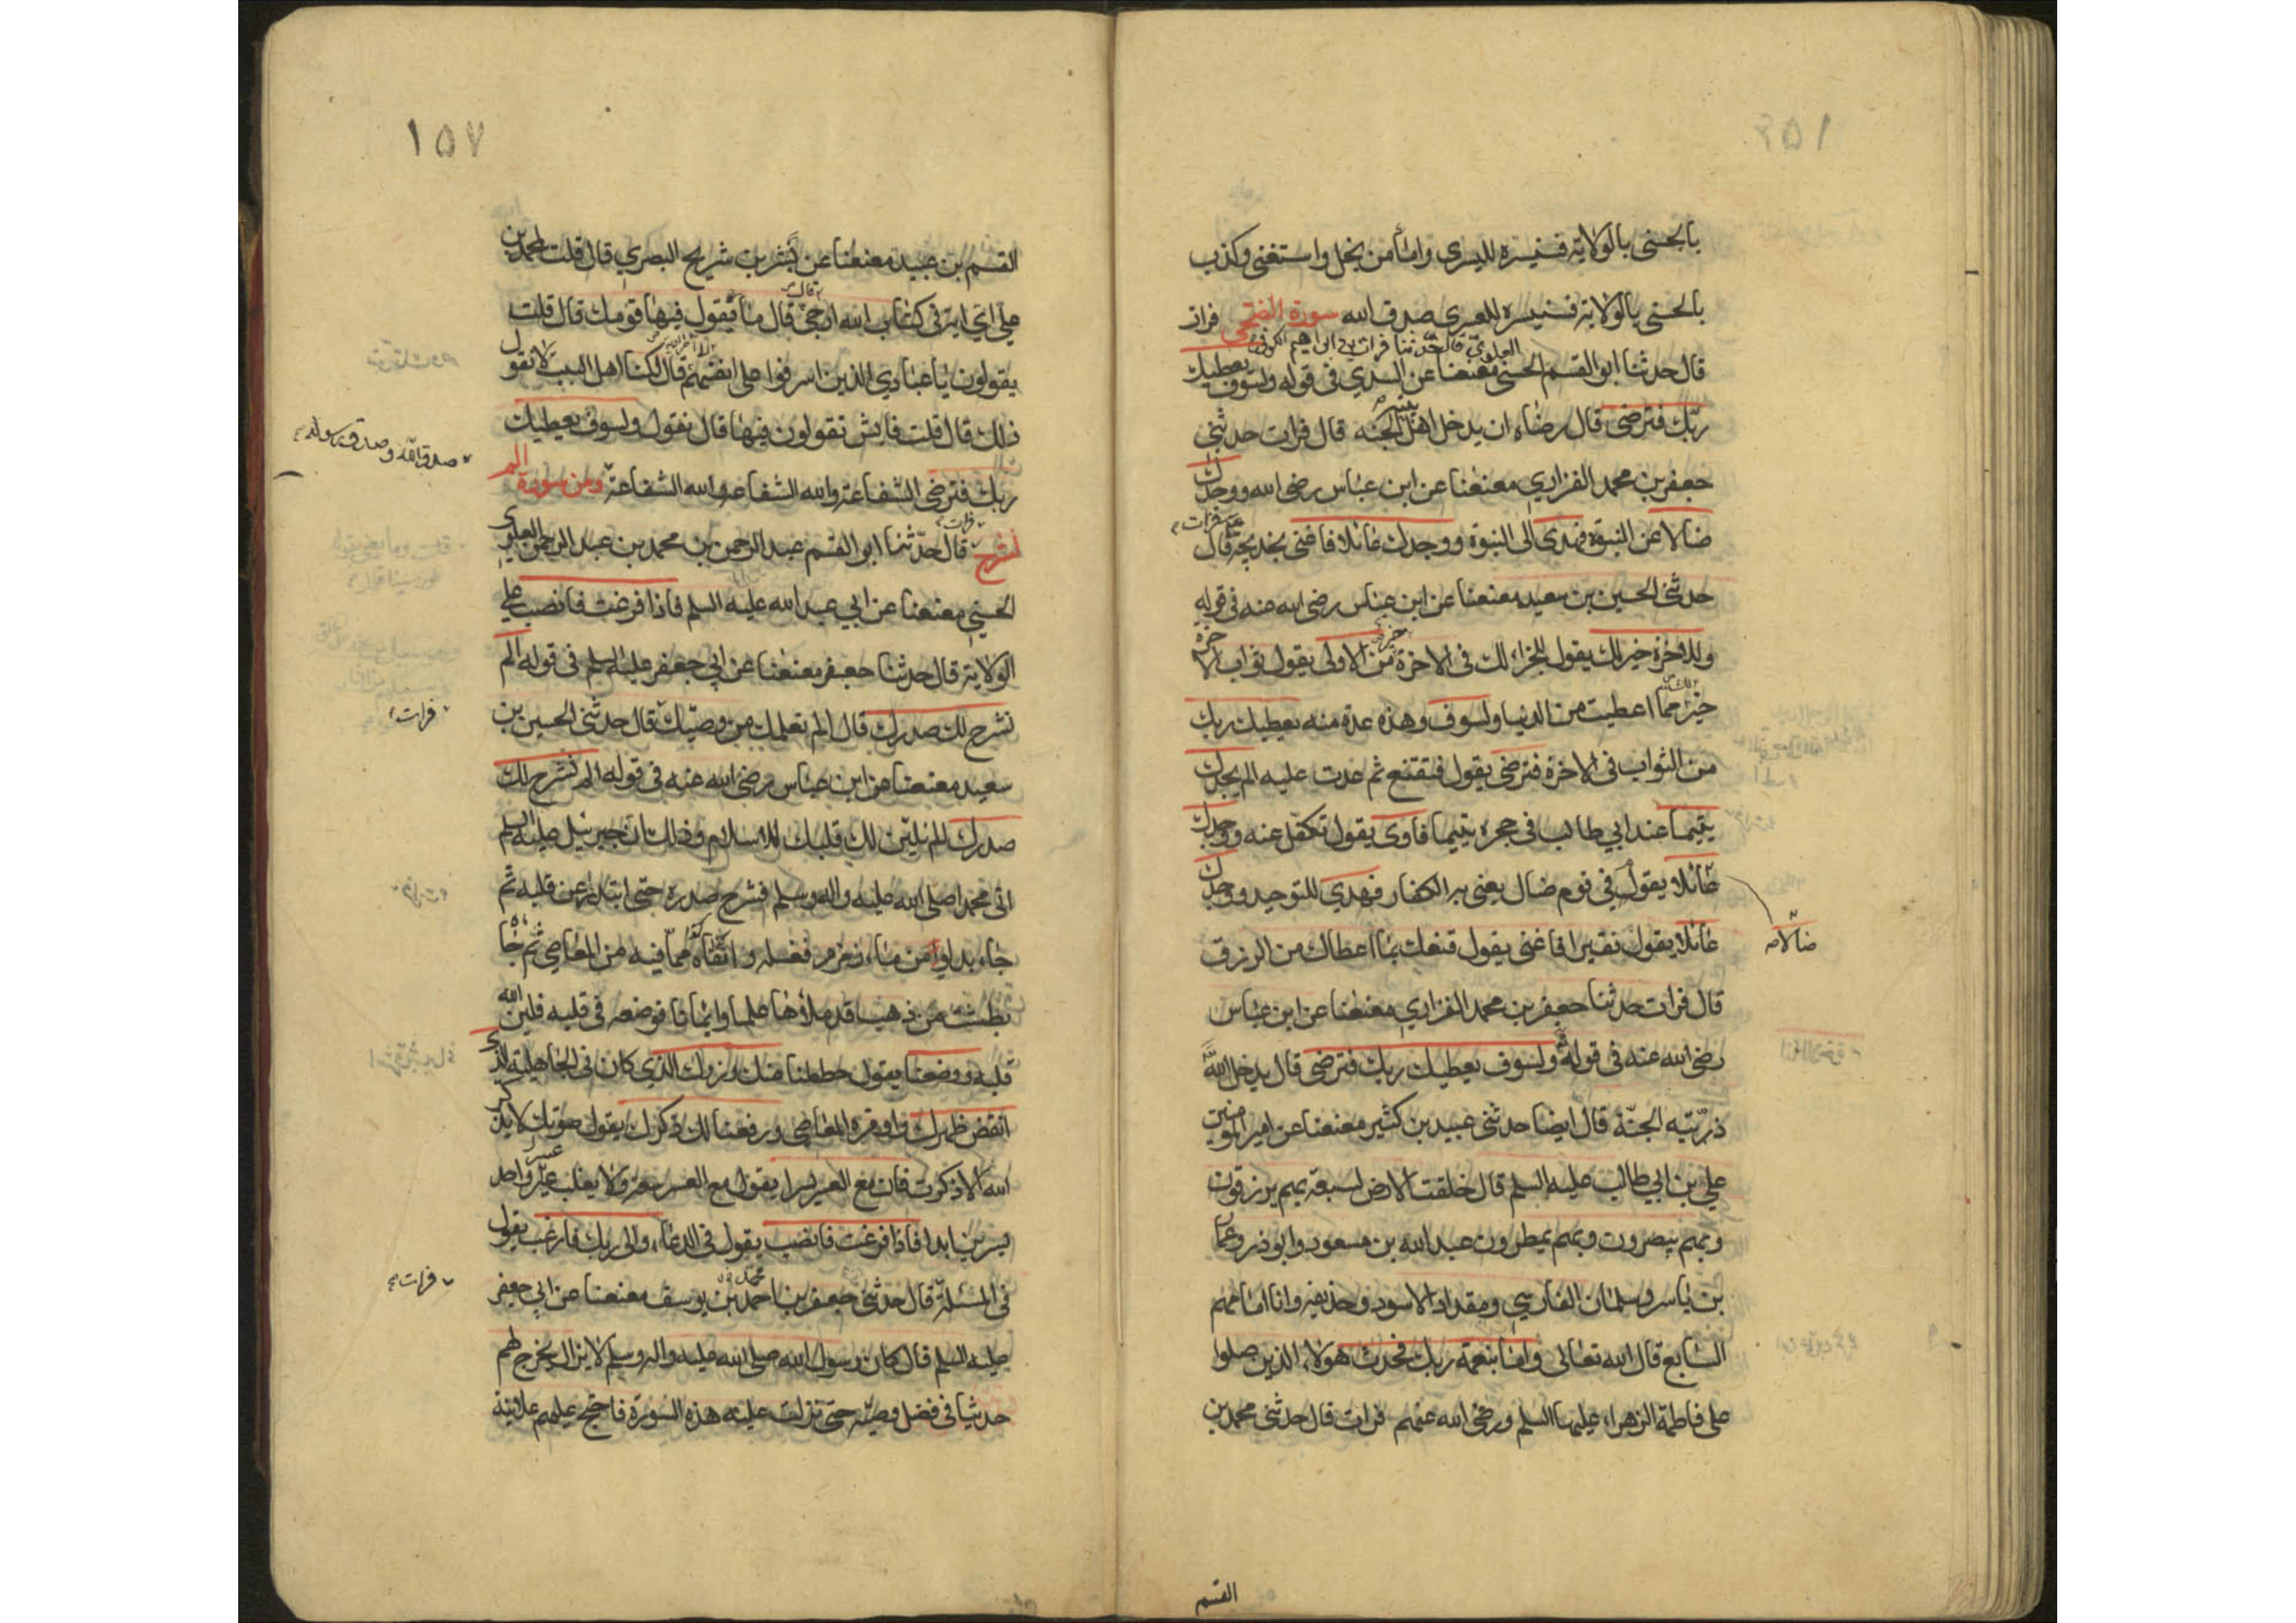 بالحسنى بالولاية فسنيسره لليسرى واما من بخل واستغنى وكذب
بالحسنى بالولاية فسنيسره للعسرى صدق الله سورة الضحى فرات
العلوي قال حدثنا فرات بن ابراهيم الكوفي
قال حدثنا ابو القسم الحسني معنعنا عن السدي في قوله ولسوف يعطيك
ربك فترضى قال رضاه ان يدخل اهل بيته الجنة قال فرات حدثني
جعفر بن محمد الفزاري معنعنا عن ابن عباس رضي الله ووجدك
ضالا عن النبوة فهدى الى النبوة ووجدك عائلا فاغنى بخديجة قال فرات
حدثني الحسين بن سعيد معنعنا عن ابن عباس رضي الله عنه في قوله
وللاخرة خير لك يقول للجزاء لك في الاخرة خير من الاولى يقول ثواب الاخرة
خير لك مما اعطيت من الدنيا ولسوف وهذه عدة منه يعطيك ربك
من الثواب في الاخرة فترضى يقول فتقنع ثم عدت عليه الم يجدك
يتيما عند ابي طالب في حجره يتيما فاوى يقول تكفل عنه ووجدك
عائلا يقول في قوم ضال يعني به الكفار فهدى للتوحيد ووجدك
ضالا
عائلا يقول فقيرا فاغنى يقول قنعك بما اعطاك من الرزق
قال فرات حدثنا جعفر بن محمد الفزاري معنعنا عن ابن عباس
رضي الله عنه في قوله ولسوف يعطيك ربك فترضى قال يدخل الله
ذريته الجنة قال ايضا حدثني عبيد بن كثير معنعنا عن امير المومنين
علي بن ابي طالب عليه السلم قال خلقت الارض لسبعة بهم يرزقون
وبهم ينصرون وبهم يمطرون عبد الله بن مسعود وابو ذر وعمار
بن ياسر وسلمان الفارسي ومقداد الاسود وحذيفة وانا امامهم
السابع قال الله تعالى واما بنعمة ربك فحدث هولاء الذين صلوا
على فاطمة الزهراء عليها السلم ورضي الله عنهم فرات قال حدثني محمد بن
القسم
١٥٧
القسم بن عبيد معنعنا عن بشر بن شريح البصري قال قلت لمحمد بن
علي اي اية في كتاب الله ارجى قال ما يقول فيها قومك قال قلت
يقولون يا عبادي الذين اسرفوا على انفسهم قال لكنا اهل البيت لا نقول
ذلك قال قلت فايش تقولون فيها قال نقول ولسوف يعطيك
صدق الله وصدق رسوله
ربك فترضى الشفاعة والله الشفاعة والله الشفاعة ومن سورة الم
نشرح فرات قال حدثنا ابو القسم عبد الرحمن بن محمد بن عبد الرحمن العلوي
الحسني معنعنا عن ابي عبد الله عليه السلم فاذا فرغت فانصب علي
الولاية قال حدثنا جعفر معنعنا عن ابي جعفر عليه السلم في قوله الم
نشرح لك صدرك قال الم نعلمك من وصيك قال حدثني الحسين بن
فرات
سعيد معنعنا عن ابن عباس رضي الله عنه في قوله الم نشرح لك
صدرك الم نلين لك قلبك للاسلام وذلك ان جبرئيل عليه السلم
اتى محمدا صلى الله عليه واله وسلم فشرح صدره حتى ابتدر عن قلبه ثم
جاء بدلو من ماء زمزم فغسله وانقاه مما فيه من المعاصي ثم جاء
بطشت من ذهب قد ملاها علما وايمانا فوضعه في قلبه فلين الله
قلبه ووضعنا يقول حططنا عنك وزرك الذي كان في الجاهلية الذي
انقض ظهرك واوقره المعاصي ورفعنا لك ذكرك يقول صوتك لا يذكر
الله الا ذكرت فان مع العسر يسرا يقول مع العسر يسر ولا يغلب عسر واحد
يسرين ابدا فاذا فرغت فانصب يقول في الدعاء والى ربك فارغب يقول
في المسئلة قال حدثني جعفر بن احمد بن يوسف معنعنا عن ابي جعفر
فرات
عليه السلم قال كان رسول الله صلى الله عليه واله وسلم لا يزال يخرج لهم
حديثا في فضل وصيه حتى نزلت عليه هذه السورة فاحتج عليهم علانية